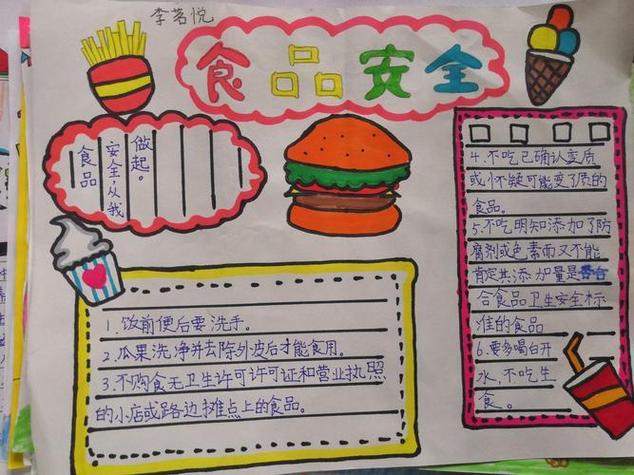 李茗悦
食品安全
食品
安全，从我
做起。
1.饭前便后要洗手。
2.瓜果洗净并去除外皮后才能食用。
3.不购食无卫生许可许可证和营业执照
的小店或路边摊点上的食品。
4.不吃已确认变质
或怀疑可能变了质的
食品。
5.不吃明知添加了防
腐剂或色素而又不能
肯定其添加量是否合
合食品卫生安全标
准的食品
6.要多喝白开
水，不吃生
食。